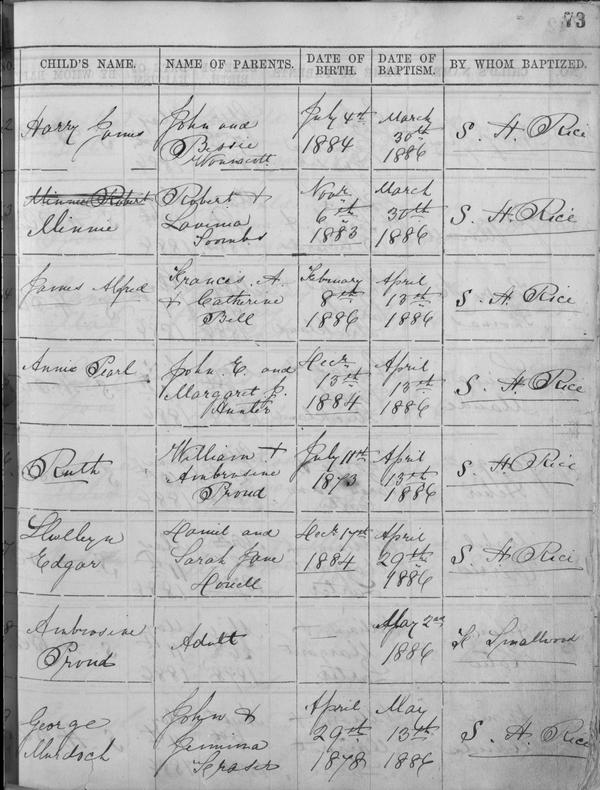 73
NO.
CHILD'S NAME. NAME OF PARENTS. DATE OF BIRTH. DATE OF BAPTISM. BY WHOM BAPTIZED.
Harry James
John and
Bessie
July 4th
1884
March
30th
1886
S. H. Rice
Minnie Robert
Minnie
Robert +
Lavinia
Toombs
Novr
6th
1883
March
30th
1886
S. H. Rice
James Alfred
Francis. A.
+ Catherine
Bell
February
8th
1886
April
13th
1886
S. H. Rice
Annie Pearl
John E. and
Margaret J.
Hunter
Decr
13th
1884
April
13th
1886
S. H. Rice
Ruth
William +
Ambrosine
Proud
July 11th
1873
April
13th
1886
S. H. Rice
Llwellyn
Edgar
Daniel and
Sarah Jane
Howell
Decr 17th
1884
April
29th
1886
S. H. Rice
Ambrosine
Proud
Adult
—
May 2nd
1886
Smallwood
George
Murdoch
John +
Jemima
Fraser
April
29th
1878
May
13th
1886
S. H. Rice